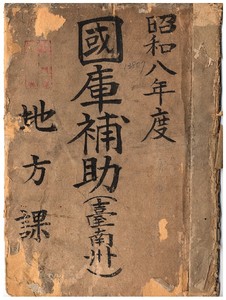 昭和八年度
國庫補助(臺南州)
地方課